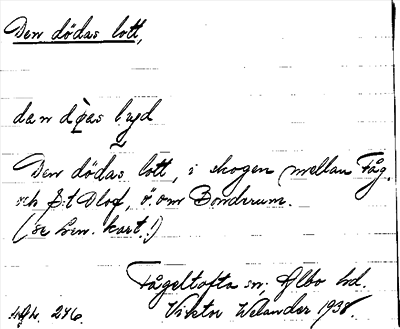 Den dödas lott,
dan døas lyd
Den dödas lott, i skogen mellan Fåg.
och S:t Olof, ö. om Bondrum.
(se Gen. kart.!)
Fågeltofta sn, Albo hd.
Viktor Welander 1938.
246.